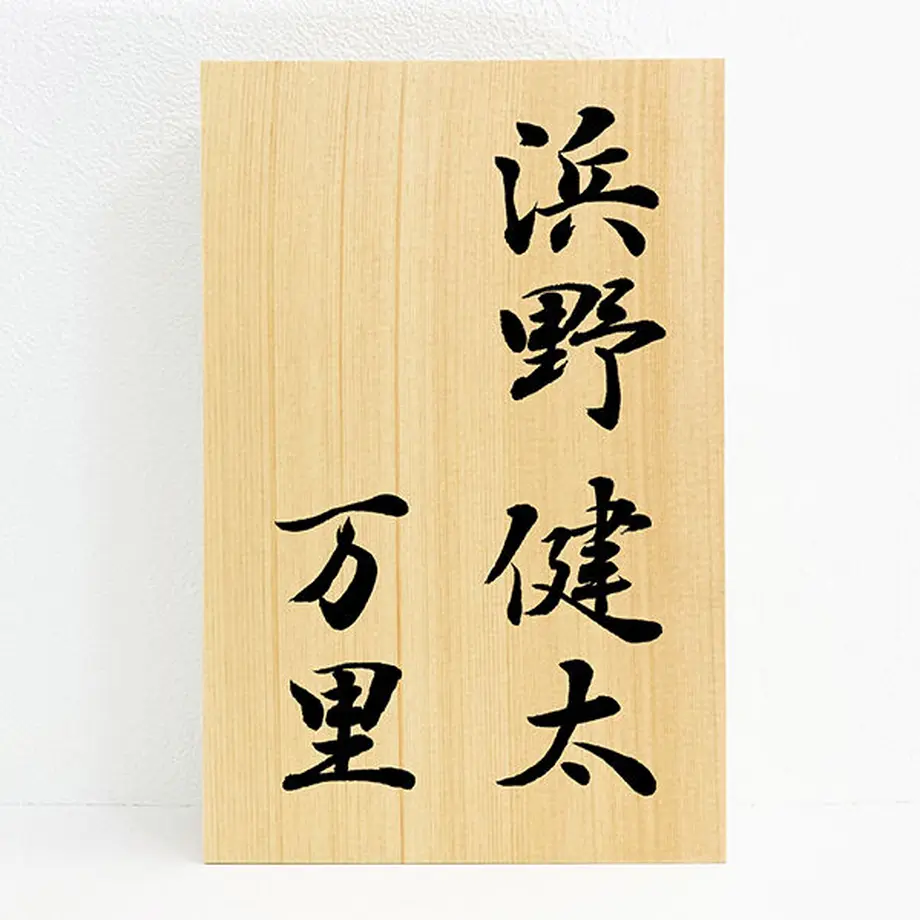 浜野健太
万里